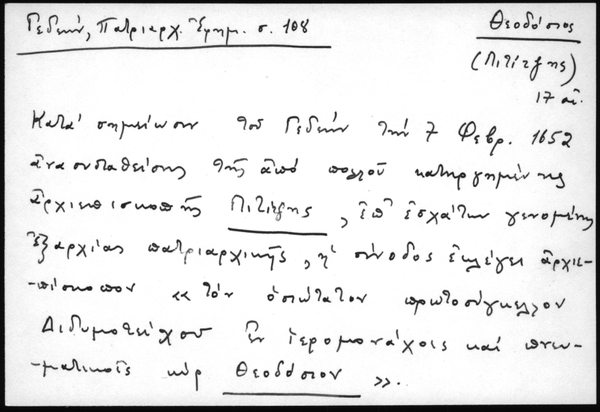 Γεδεών, Πατριαρχ. Ἐφημ. σ. 108
Θεοδόσιος
(Πιτίτζης)
17 αἰ.
Κατά σημείωσιν τοῦ Γεδεών τήν 7 Φεβρ. 1652
ἀνασυσταθείσης τῆς ἀπό πολλοῦ κατηργημένης
ἀρχιεπισκοπῆς Πιτίτζης, ἐπ' ἐσχάτων γενομένης
ἐξαρχίας πατριαρχικῆς, ἡ σύνοδος ἐκλέγει ἀρχιε-
-πίσκοπον «τόν ὁσιώτατον πρωτοσύγκελλον
Διδυμοτείχου ἐν ἱερομονάχοις καί πνευ-
-ματικοῖς κύρ Θεοδόσιον».